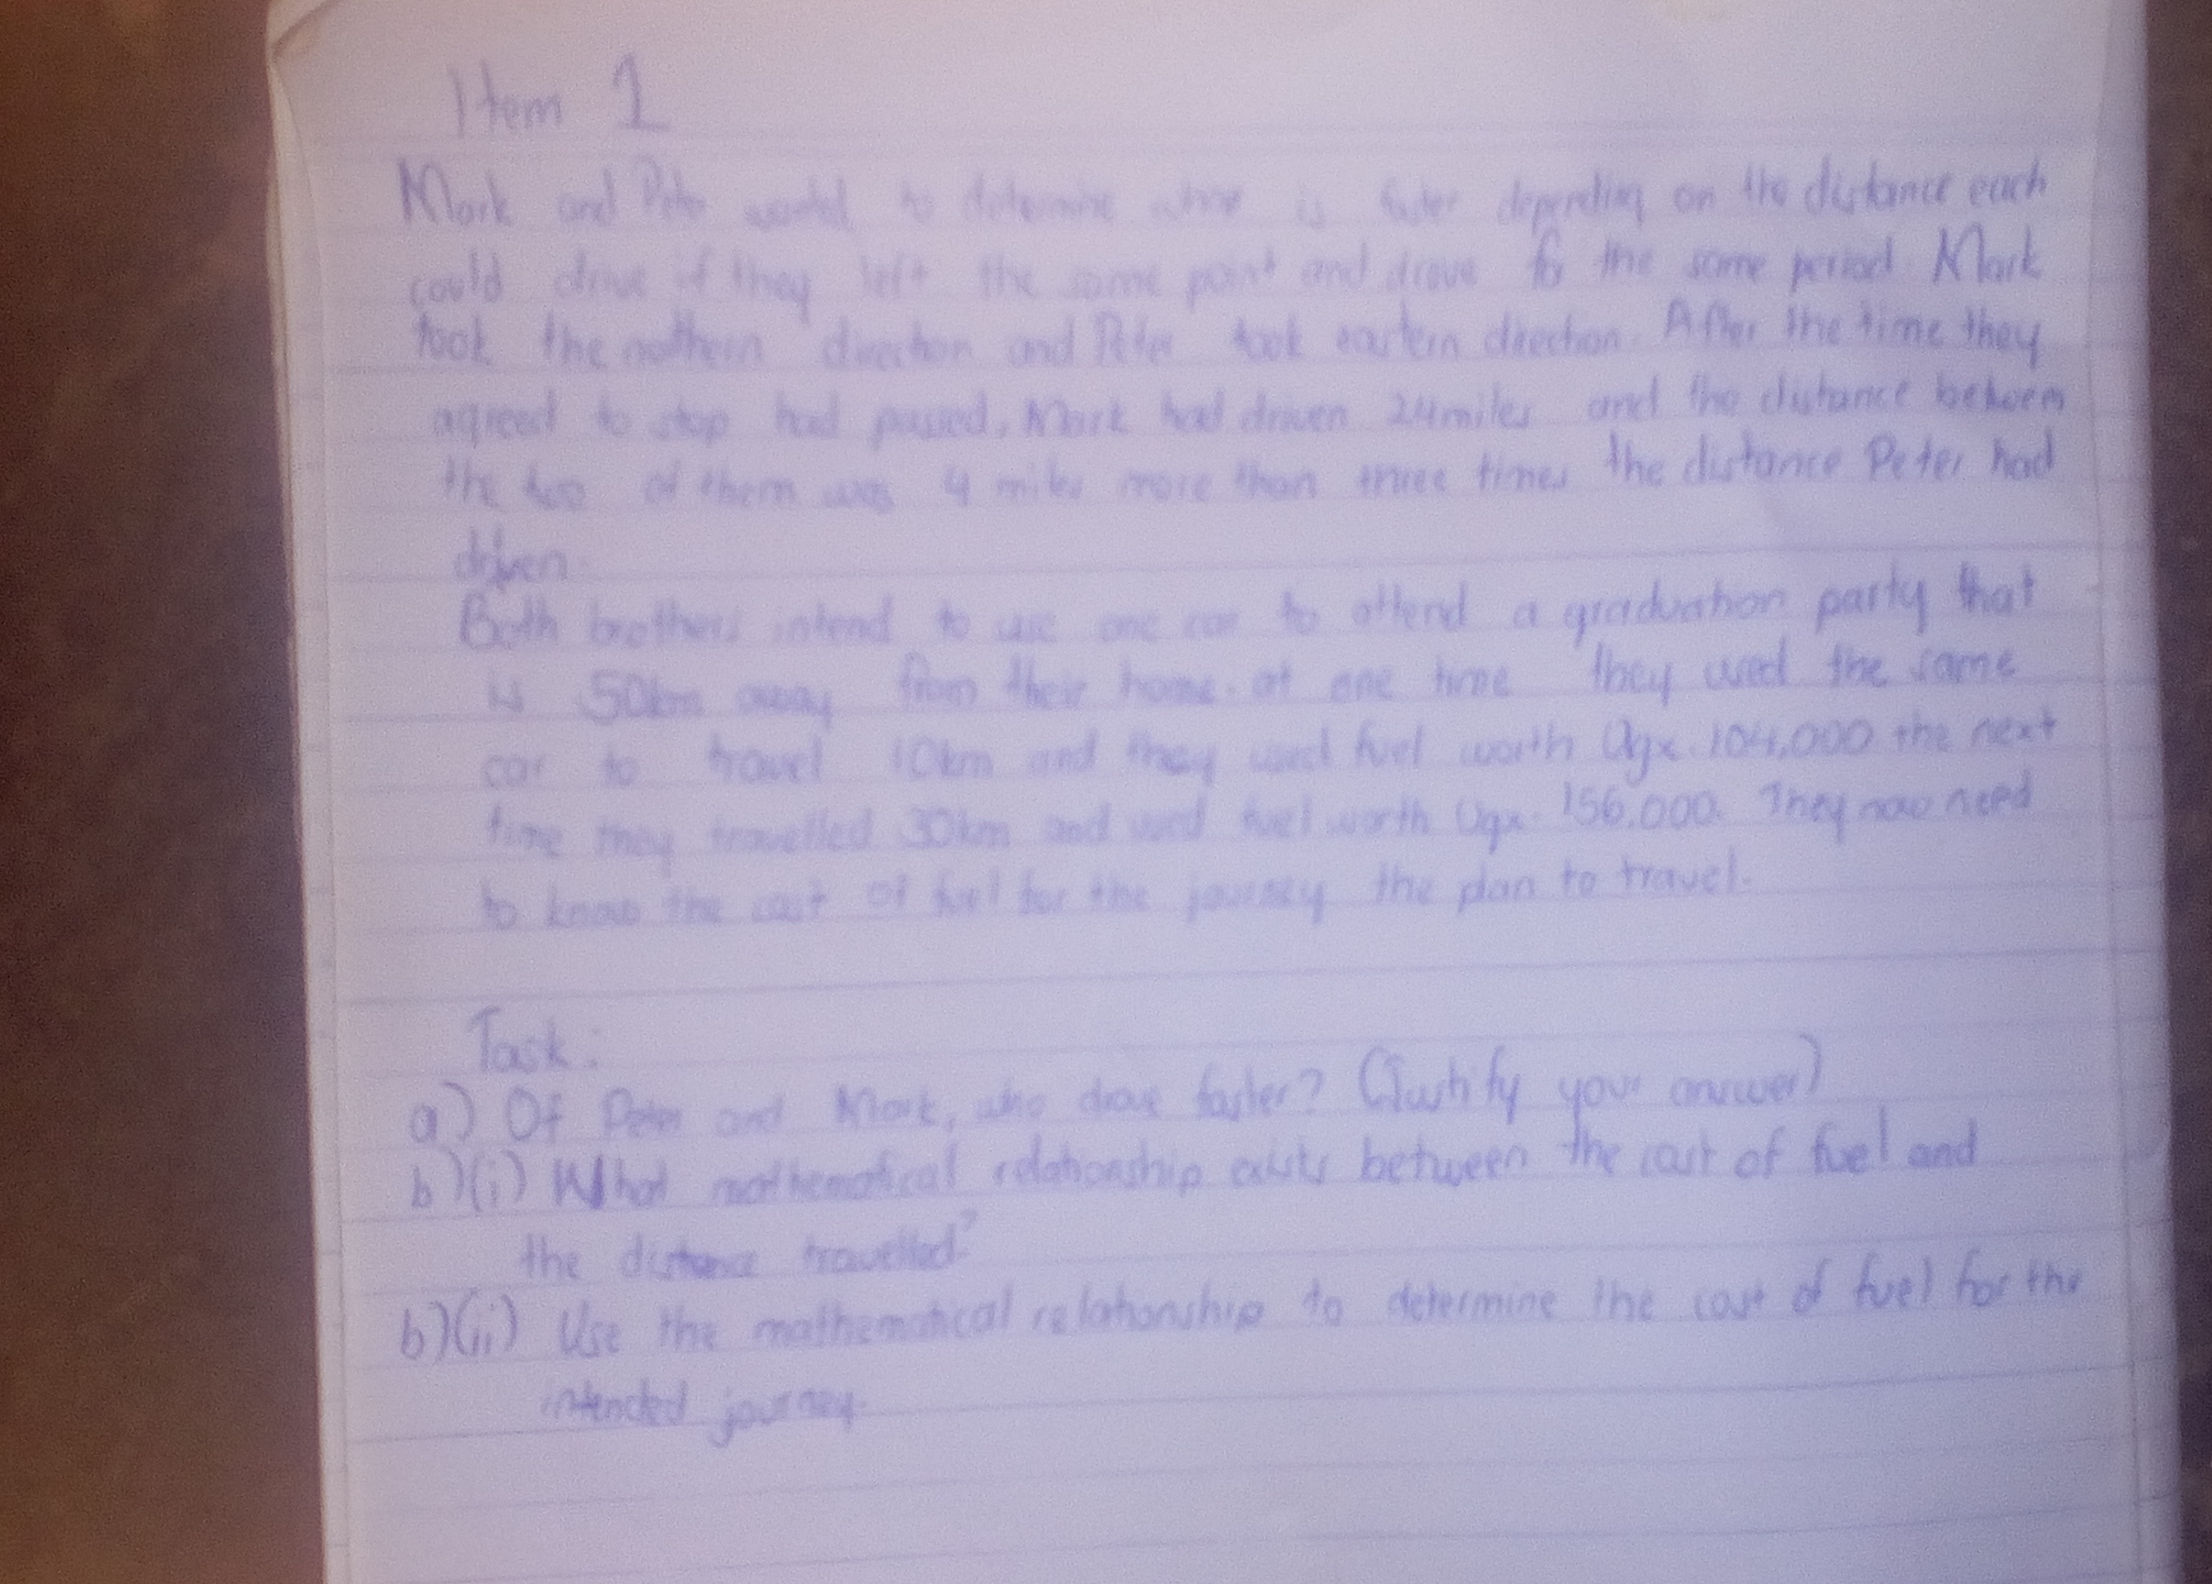 Item 1
Mark and Peter wanted to determine who is faster depending on the distance each
could drive if they left the same point and drove for the same period Mark
took the nothern direction and Peter took eastern direction. After the time they
agreed to stop had passed, Mark had driven 24 miles and the distance between
the two of them was 4 miles more than three times the distance Peter had
driven.
Both brothers intend to use one car to attend a graduation party that
is 50km away from their home. at one time they used the same
car to travel 10km and they used fuel worth Ugx. 104,000 the next
time they travelled 30km and used fuel worth Ugx. 156,000. They now need
to know the cost of fuel for the journey the plan to travel.
Task:
a) Of Peter and Mark, who drove faster? (Justify your answer)
b)(i) What mathematical relationship exists between the cost of fuel and
the distance travelled?
b)(ii) Use the mathematical relationship to determine the cost of fuel for the
intended journey.